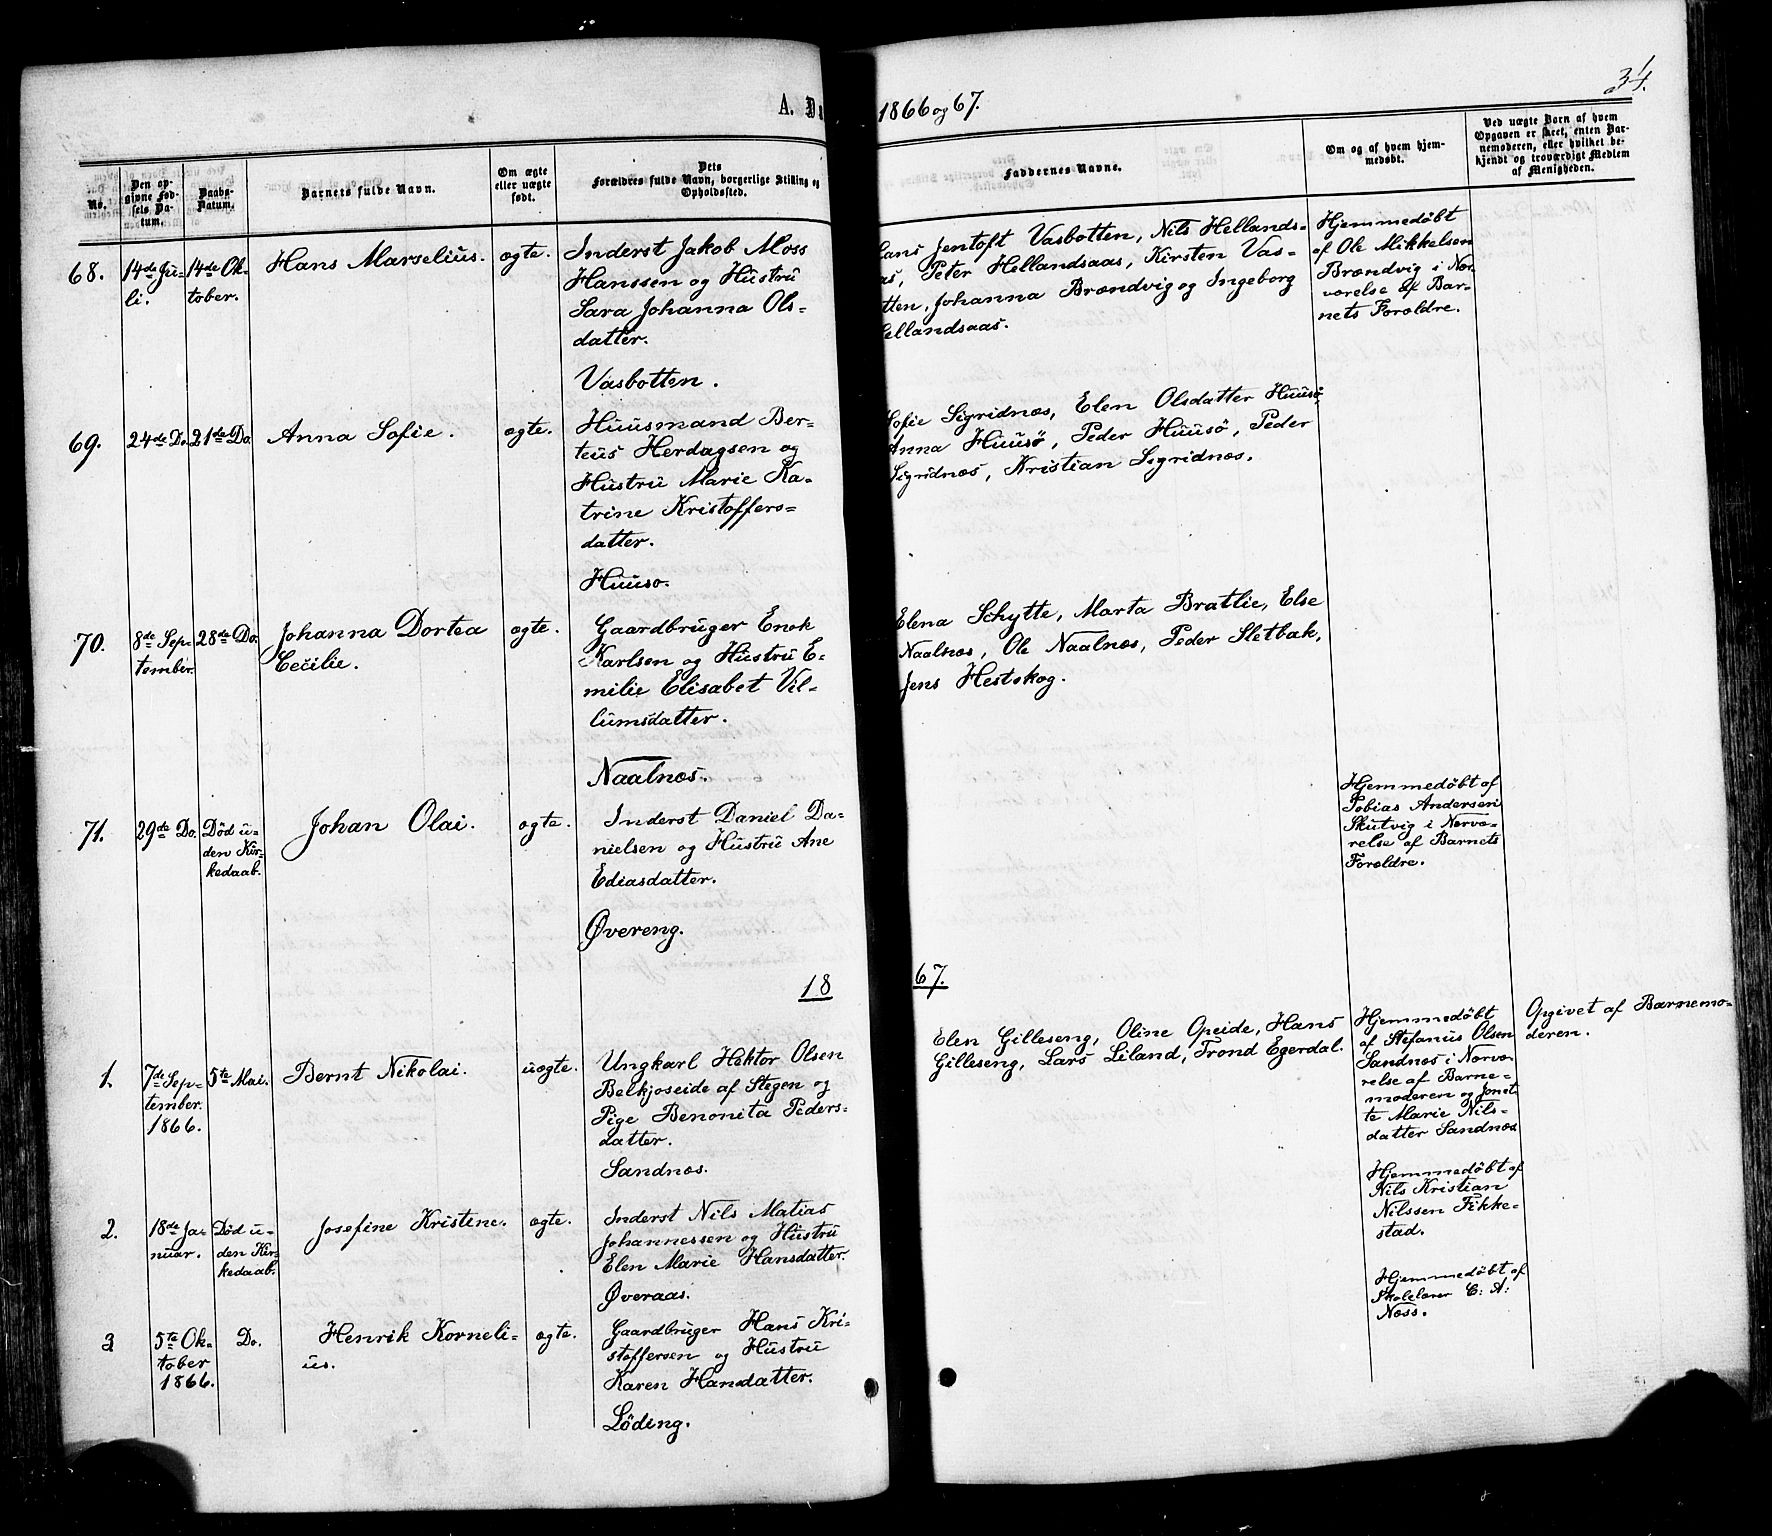 A. D
1866 og 67.
34.
No.
Den op-
givne Fød-
sels Da-
tum.
Daabs-
Datum.
Barnets fulde Navn.
Om ægte
eller uægte
født.
Dets
Forældres fulde Navn, borgerlige Stilling og
Opholdssted.
Faddernes Navne.
Om og af hvem hjem-
medøbt.
Ved uægte Børn af hvem
Opgaven er skeet, enten Bar-
nemoderen, eller hvilket be-
kjendt og troværdigt Medlem
af Menigheden.
68.
14de Ju-
li.
14de Ok-
tober.
Hans Marselius.
ægte.
Inderst Jakob Moss
Hanssen og Hustru
Sara Johanna Ols-
datter.
Vasbotten.
ans Jentoft Vasbotten, Nils Hellands-
as, Peter Hellandsaas, Kirsten Vas-
tten, Johanna Brændvig og Ingeborg
ellandsaas.
Hjemmedøbt
af Ole Mikkelsen
Brændvig i Nær-
værelse af Bar-
nets Forældre.
69.
24de Do.
21de Do.
Anna Sofie.
ægte.
Huusmand Ber-
teus Herdagsen og
Hustru Marie Ka-
trine Kristoffers-
datter.
Huusø.
Sofie Sigridnæs, Elen Olsdatter Huusø,
Anna Huusø, Peder Huusø, Peder
Sigridnæs, Kristian Sigridnæs.
70.
8de Sep-
tember.
28de Do.
Johanna Dortea
Cecilie.
ægte.
Gaardbruger Enok
Karlsen og Hustru E-
milie Elisabet Vil-
lumsdatter.
Naalnæs.
Elena Schytte, Marta Bratlie, Else
Naalnæs, Ole Naalnæs, Peder Sletbak,
Jens Hestskog.
71.
29de Do.
Død u-
den Kir-
kedaab.
Johan Olai.
ægte.
Inderst Daniel Da-
nielsen og Hustru Ane
Ediasdatter.
Øvereng.
Hjemmedøbt af
Tobias Andersen
Skutvig i Nærvæ-
relse af Barnets
Forældre.
18
67.
1.
7de Sep-
tember.
1866.
5te Mai.
Bernt Nikolai.
uægte.
Ungkarl Hektor Olsen
Belkjoseide af Stegen og
Pige Benonita Peders-
datter.
Sandnæs.
Elen Gilleseng, Oline Opeide, Hans
Gilleseng, Lars Liland, Trond Egerdal.
Hjemmedøbt
af Stefanus Olsen
Sandnæs i Nærvæ-
relse af Barne-
moderen og
te Marie Nils-
datter Sandnæs
Opgivet af Barnemo-
deren.
2.
18de Ja-
nuar.
Død u-
den Kir-
kedaab.
Josefine Kristine.
ægte.
Inderst Nils Matias
Johannessen og Hustru
Elen Marie Hansdatter.
Øveraas.
Hjemmedøbt af
Nils Kristian
Nilssen Fikke-
stad.
3
5te Ok-
tober
1866.
Do.
Henrik Korneli-
us.
ægte.
Gaardbruger Hans Kri-
stoffersen og Hustru
Karen Hansdatter.
Løding.
Hjemmedøbt af
Skolelærer C: A:
Næss.